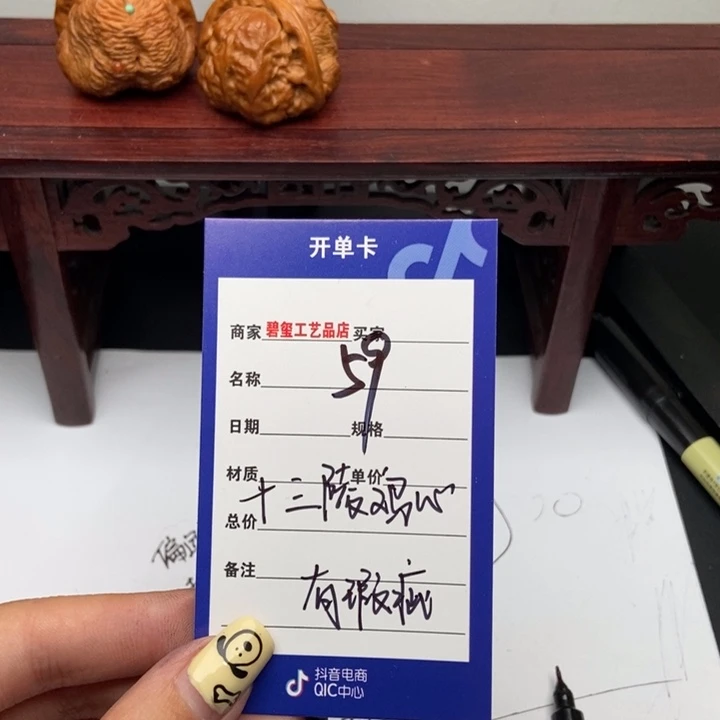 开单卡
商家 碧玺工艺品店 买家
59
名称
日期 规格
材质 单价
十三陵鸡心
总价
备注
有瑕疵
抖音电商
QIC中心